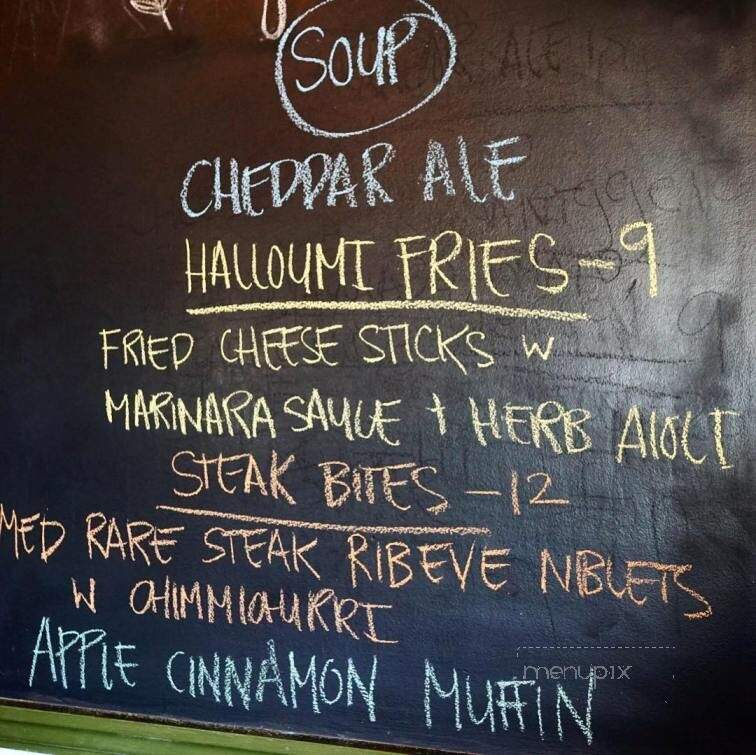 SOUP
CHEDDAR ALE
HALLOUMI FRIES - 9
FRIED CHEESE STICKS W
MARINARA SAUCE + HERB AIOLI
STEAK BITES - 12
MED RARE STEAK RIBEYE NIBLETS
W CHIMMICHURRI
APPLE CINNAMON MUFFIN
menupix